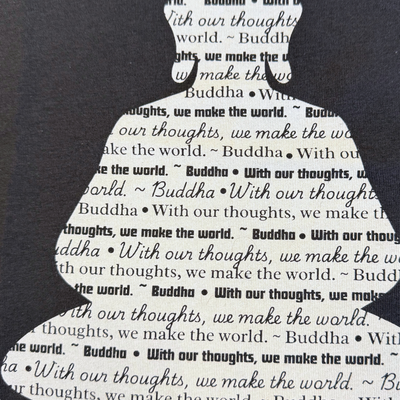 ld. ~ Buddha • With o
With our thoughts
world. ~ Buddh
ghts, we make the w
w make the wo
Buddha • With
oughts, we make the world. ~ Budd
our thoughts, we make the wo
ake the world. ~ Buddha • With ou
ke the world. ~ Buddha • With our thoughts, w
orld. ~ Buddha • With our thought
Buddha • With our thoughts, we make th
thoughts, we make the world. ~ Buddha • With our
uddha • With our thoughts, we make the w
ith our thoughts, we make the world. ~ Budd
the world. ~ Buddha • With our thoughts, we make
ith our thoughts, we make the world.
thoughts, we make the world. ~ Buddha • Wit
he world. ~ Buddha • With our thoughts, we make the world. ~
a • With our thoughts, we make the world. ~ Bu
ur thoughts, we make the world. ~ Buddha